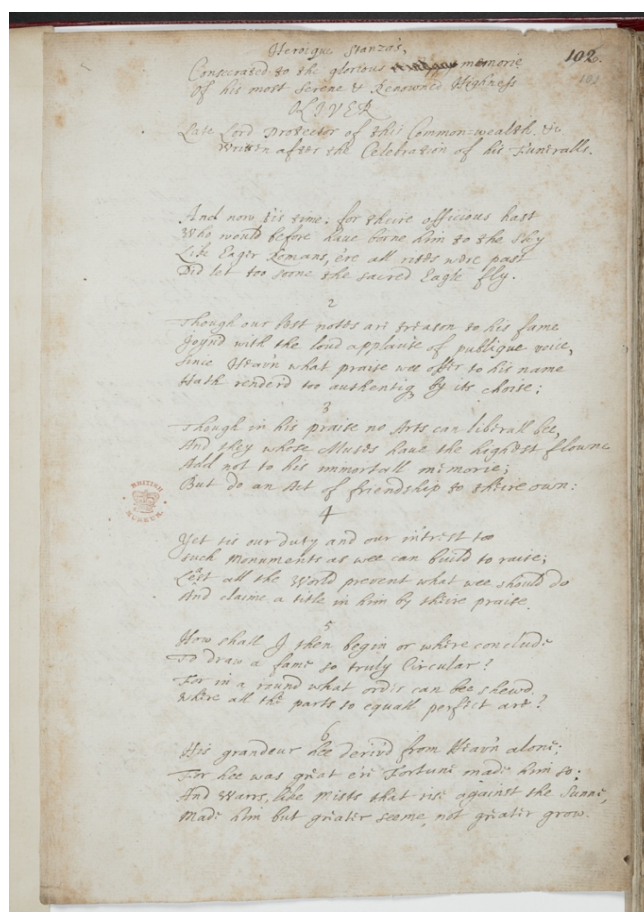 Heroique Stanza's,
102.
Consecrated to the glorious memorie
Of his most Serene & Renowned Highness
OLIVER
Late Lord Protector of this Common-wealth. &c.
Written after the Celebration of his Funeralls.
And now tis time; for theire officious hast
Who would before have borne him to the sky
Like Eager Romans, e're all rites were past
Did let too soone the sacred Eagle fly.
2
Though our best notes are treason to his fame
Joynd with the loud applause of publique voice,
Since Heav'n what praise wee offer to his name
Hath renderd too authentiq by its choise:
3
Though in his praise no Arts can liberall bee,
And they whose Muses have the highest flowne
Add not to his immortall memorie;
But do an Act of friendship to theire own:
BRITISH
MUSEUM
4
Yet tis our duty and our int'rest too
Such Monuments as wee can build to raise;
Least all the World prevent what wee should do
And claime a title in him by theire praise.
5
How shall I then begin or where conclude
To draw a fame so truly Circular?
For in a round what order can bee shewd,
Where all the parts so equall perfect are?
6
His grandeur hee deriv'd from Heav'n alone;
For hee was great e're Fortune made him so;
And Warrs, like Mists that rise against the Sunne,
Made him but greater seeme, not greater grow.